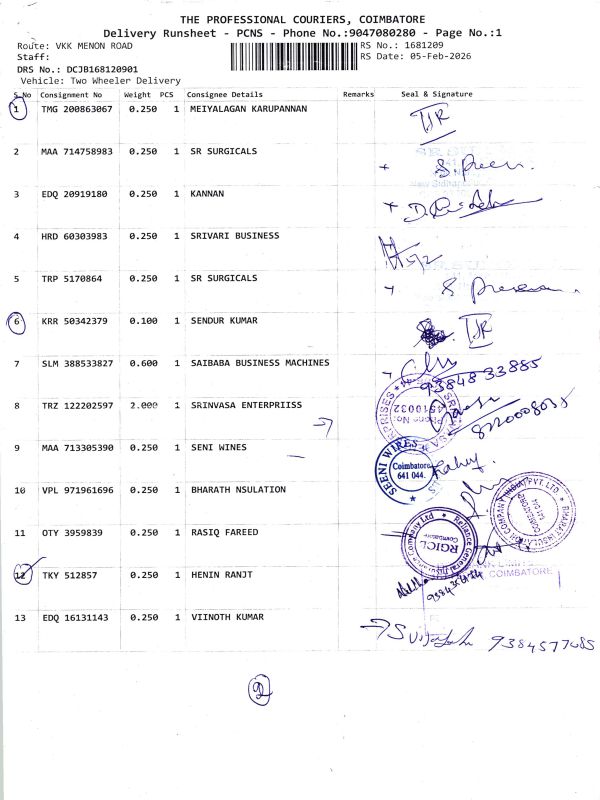 THE PROFESSIONAL COURIERS, COIMBATORE
Delivery Runsheet - PCNS - Phone No.:9047080280 - Page No.:1
Route: VKK MENON ROAD RS No.: 1681209
Staff: RS Date: 05-Feb-2026
DRS No.: DCJB168120901
Vehicle: Two Wheeler Delivery
S.No Consignment No Weight PCS Consignee Details Remarks Seal & Signature
1 TMG 200863067 0.250 1 MEIYALAGAN KARUPANNAN
2 MAA 714758983 0.250 1 SR SURGICALS
3 EDQ 20919180 0.250 1 KANNAN
4 HRD 60303983 0.250 1 SRIVARI BUSINESS
5 TRP 5170864 0.250 1 SR SURGICALS
6 KRR 50342379 0.100 1 SENDUR KUMAR
7 SLM 388533827 0.600 1 SAIBABA BUSINESS MACHINES
9384833885
8 TRZ 122202597 2.000 1 SRINVASA ENTERPRIISS
9 MAA 713305390 0.250 1 SENI WINES
SEENI WIRES
Coimbatore
641 044.
10 VPL 971961696 0.250 1 BHARATH NSULATION
COIMBATORE
641 044
11 OTY 3959839 0.250 1 RASIQ FAREED
RGICL
Coimbatore
12 TKY 512857 0.250 1 HENIN RANJT
COIMBATORE
13 EDQ 16131143 0.250 1 VIINOTH KUMAR
9384577685
2